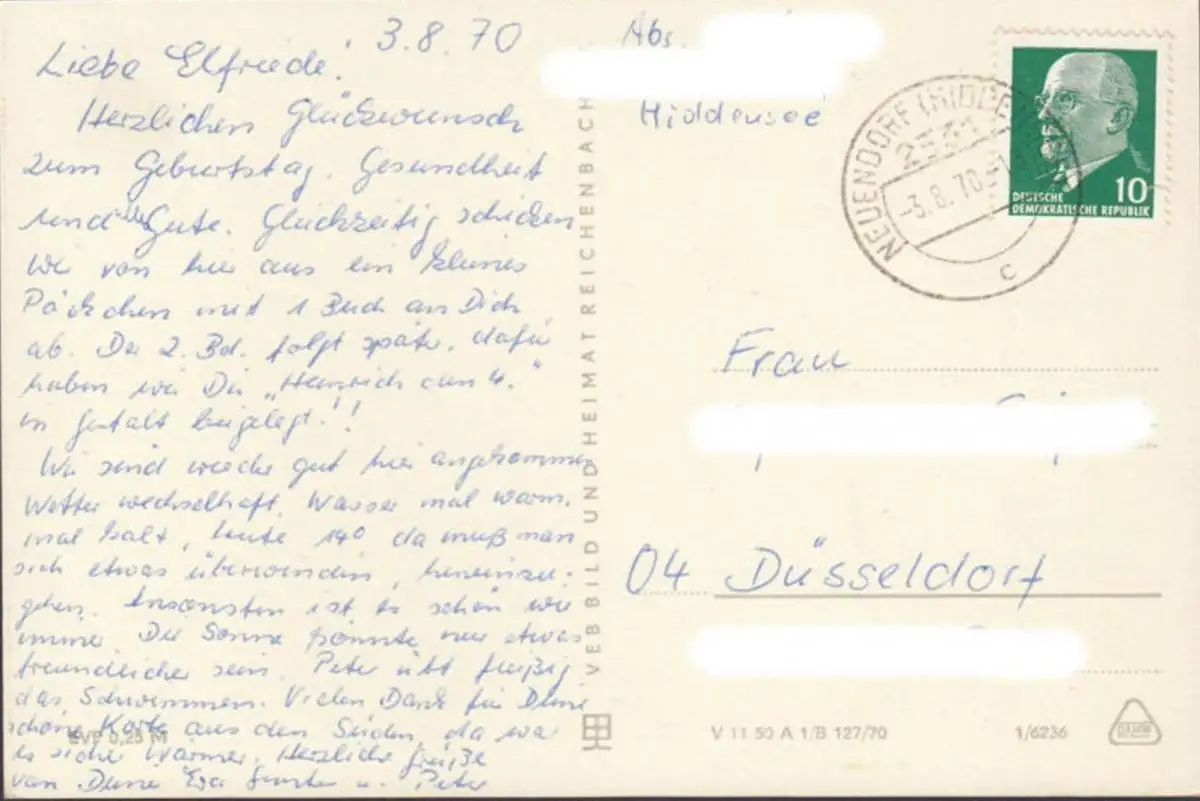 3.8.70
Liebe Elfriede!
Herzlichen Glückwunsch
zum Geburtstag. Gesundheit
und alles Gute. Gleichzeitig schicken
wir von hier aus ein kleines
Päckchen mit 1 Buch an Dich
ab. Der 2. Bd. folgt später, dafür
haben wir Dir „Heinrich den 4."
in Gestalt beigelegt!!
Wir sind wieder gut hier angekommen
Wetter wechselhaft. Wasser mal warm,
mal kalt, heute 14° da muß man
sich etwas überwinden, hereinzu-
gehen. Ansonsten ist es schön wie
immer. Die Sonne könnte nur etwas
freundlicher sein. Peter übt fleißig
das Schwimmen. Vielen Dank für Deine
schöne Karte aus dem Süden, da war
es sicher wärmer. Herzliche Grüße
von Deiner Eva u. Peter
EVP 0,25 M
VEB BILD UND HEIMAT REICHENBACH
Abs.
Hiddensee
NEUENDORF (HIDDENSEE)
2331
-3.8.70-
c
10
DEUTSCHE
DEMOKRATISCHE REPUBLIK
Frau
04 Düsseldorf
V 11 50 A 1/B 127/70
1/6236